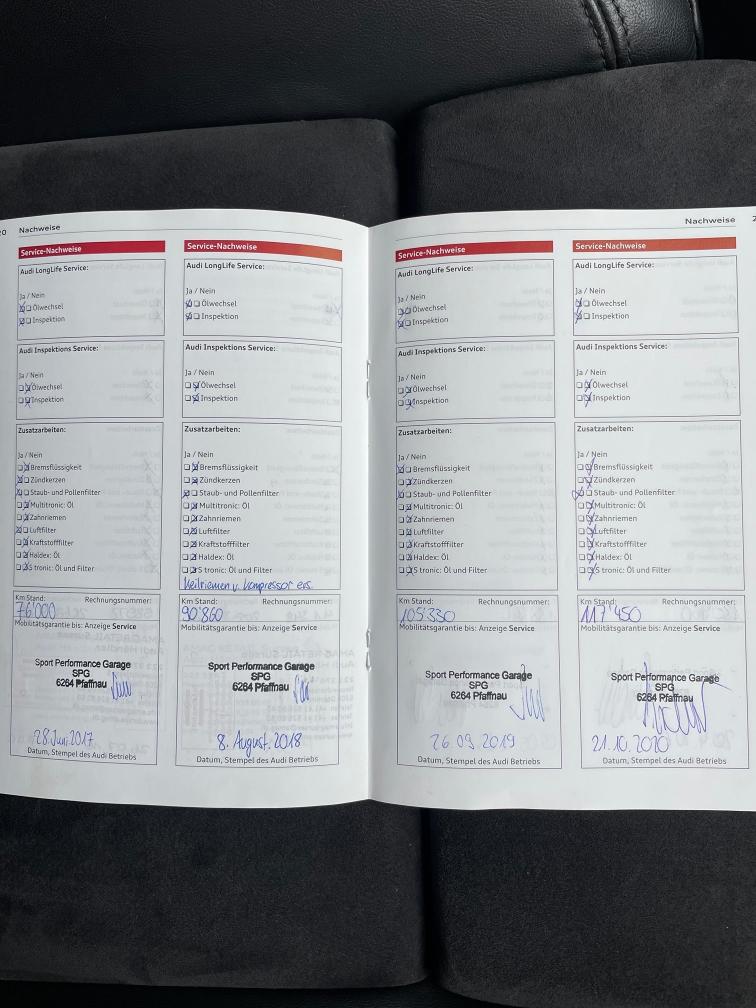 20 Nachweise
Service-Nachweise
Audi LongLife Service:
Ja / Nein
Ölwechsel
Inspektion
Audi Inspektions Service:
Ja / Nein
Ölwechsel
Inspektion
Zusatzarbeiten:
Ja / Nein
Bremsflüssigkeit
Zündkerzen
Staub- und Pollenfilter
Multitronic: Öl
Zahnriemen
Luftfilter
Kraftstofffilter
Haldex: Öl
S tronic: Öl und Filter
Km Stand: Rechnungsnummer:
76'000
Mobilitätsgarantie bis: Anzeige Service
Sport Performance Garage
SPG
6264 Pfaffnau
28.Juni 2017
Datum, Stempel des Audi Betriebs
Service-Nachweise
Audi LongLife Service:
Ja / Nein
Ölwechsel
Inspektion
Audi Inspektions Service:
Ja / Nein
Ölwechsel
Inspektion
Zusatzarbeiten:
Ja / Nein
Bremsflüssigkeit
Zündkerzen
Staub- und Pollenfilter
Multitronic: Öl
Zahnriemen
Luftfilter
Kraftstofffilter
Haldex: Öl
S tronic: Öl und Filter
Keilriemen v. Kompressor ers.
Km Stand: Rechnungsnummer:
90'860
Mobilitätsgarantie bis: Anzeige Service
Sport Performance Garage
SPG
6264 Pfaffnau
8. August 2018
Datum, Stempel des Audi Betriebs
Nachweise 2
Service-Nachweise
Audi LongLife Service:
Ja / Nein
Ölwechsel
Inspektion
Audi Inspektions Service:
Ja / Nein
Ölwechsel
Inspektion
Zusatzarbeiten:
Ja / Nein
Bremsflüssigkeit
Zündkerzen
Staub- und Pollenfilter
Multitronic: Öl
Zahnriemen
Luftfilter
Kraftstofffilter
Haldex: Öl
S tronic: Öl und Filter
Km Stand: Rechnungsnummer:
105'330
Mobilitätsgarantie bis: Anzeige Service
Sport Performance Garage
SPG
6264 Pfaffnau
26.09.2019
Datum, Stempel des Audi Betriebs
Service-Nachweise
Audi LongLife Service:
Ja / Nein
Ölwechsel
Inspektion
Audi Inspektions Service:
Ja / Nein
Ölwechsel
Inspektion
Zusatzarbeiten:
Ja / Nein
Bremsflüssigkeit
Zündkerzen
Staub- und Pollenfilter
Multitronic: Öl
Zahnriemen
Luftfilter
Kraftstofffilter
Haldex: Öl
S tronic: Öl und Filter
Km Stand: Rechnungsnummer:
117'450
Mobilitätsgarantie bis: Anzeige Service
Sport Performance Garage
SPG
6264 Pfaffnau
21.10.2020
Datum, Stempel des Audi Betriebs